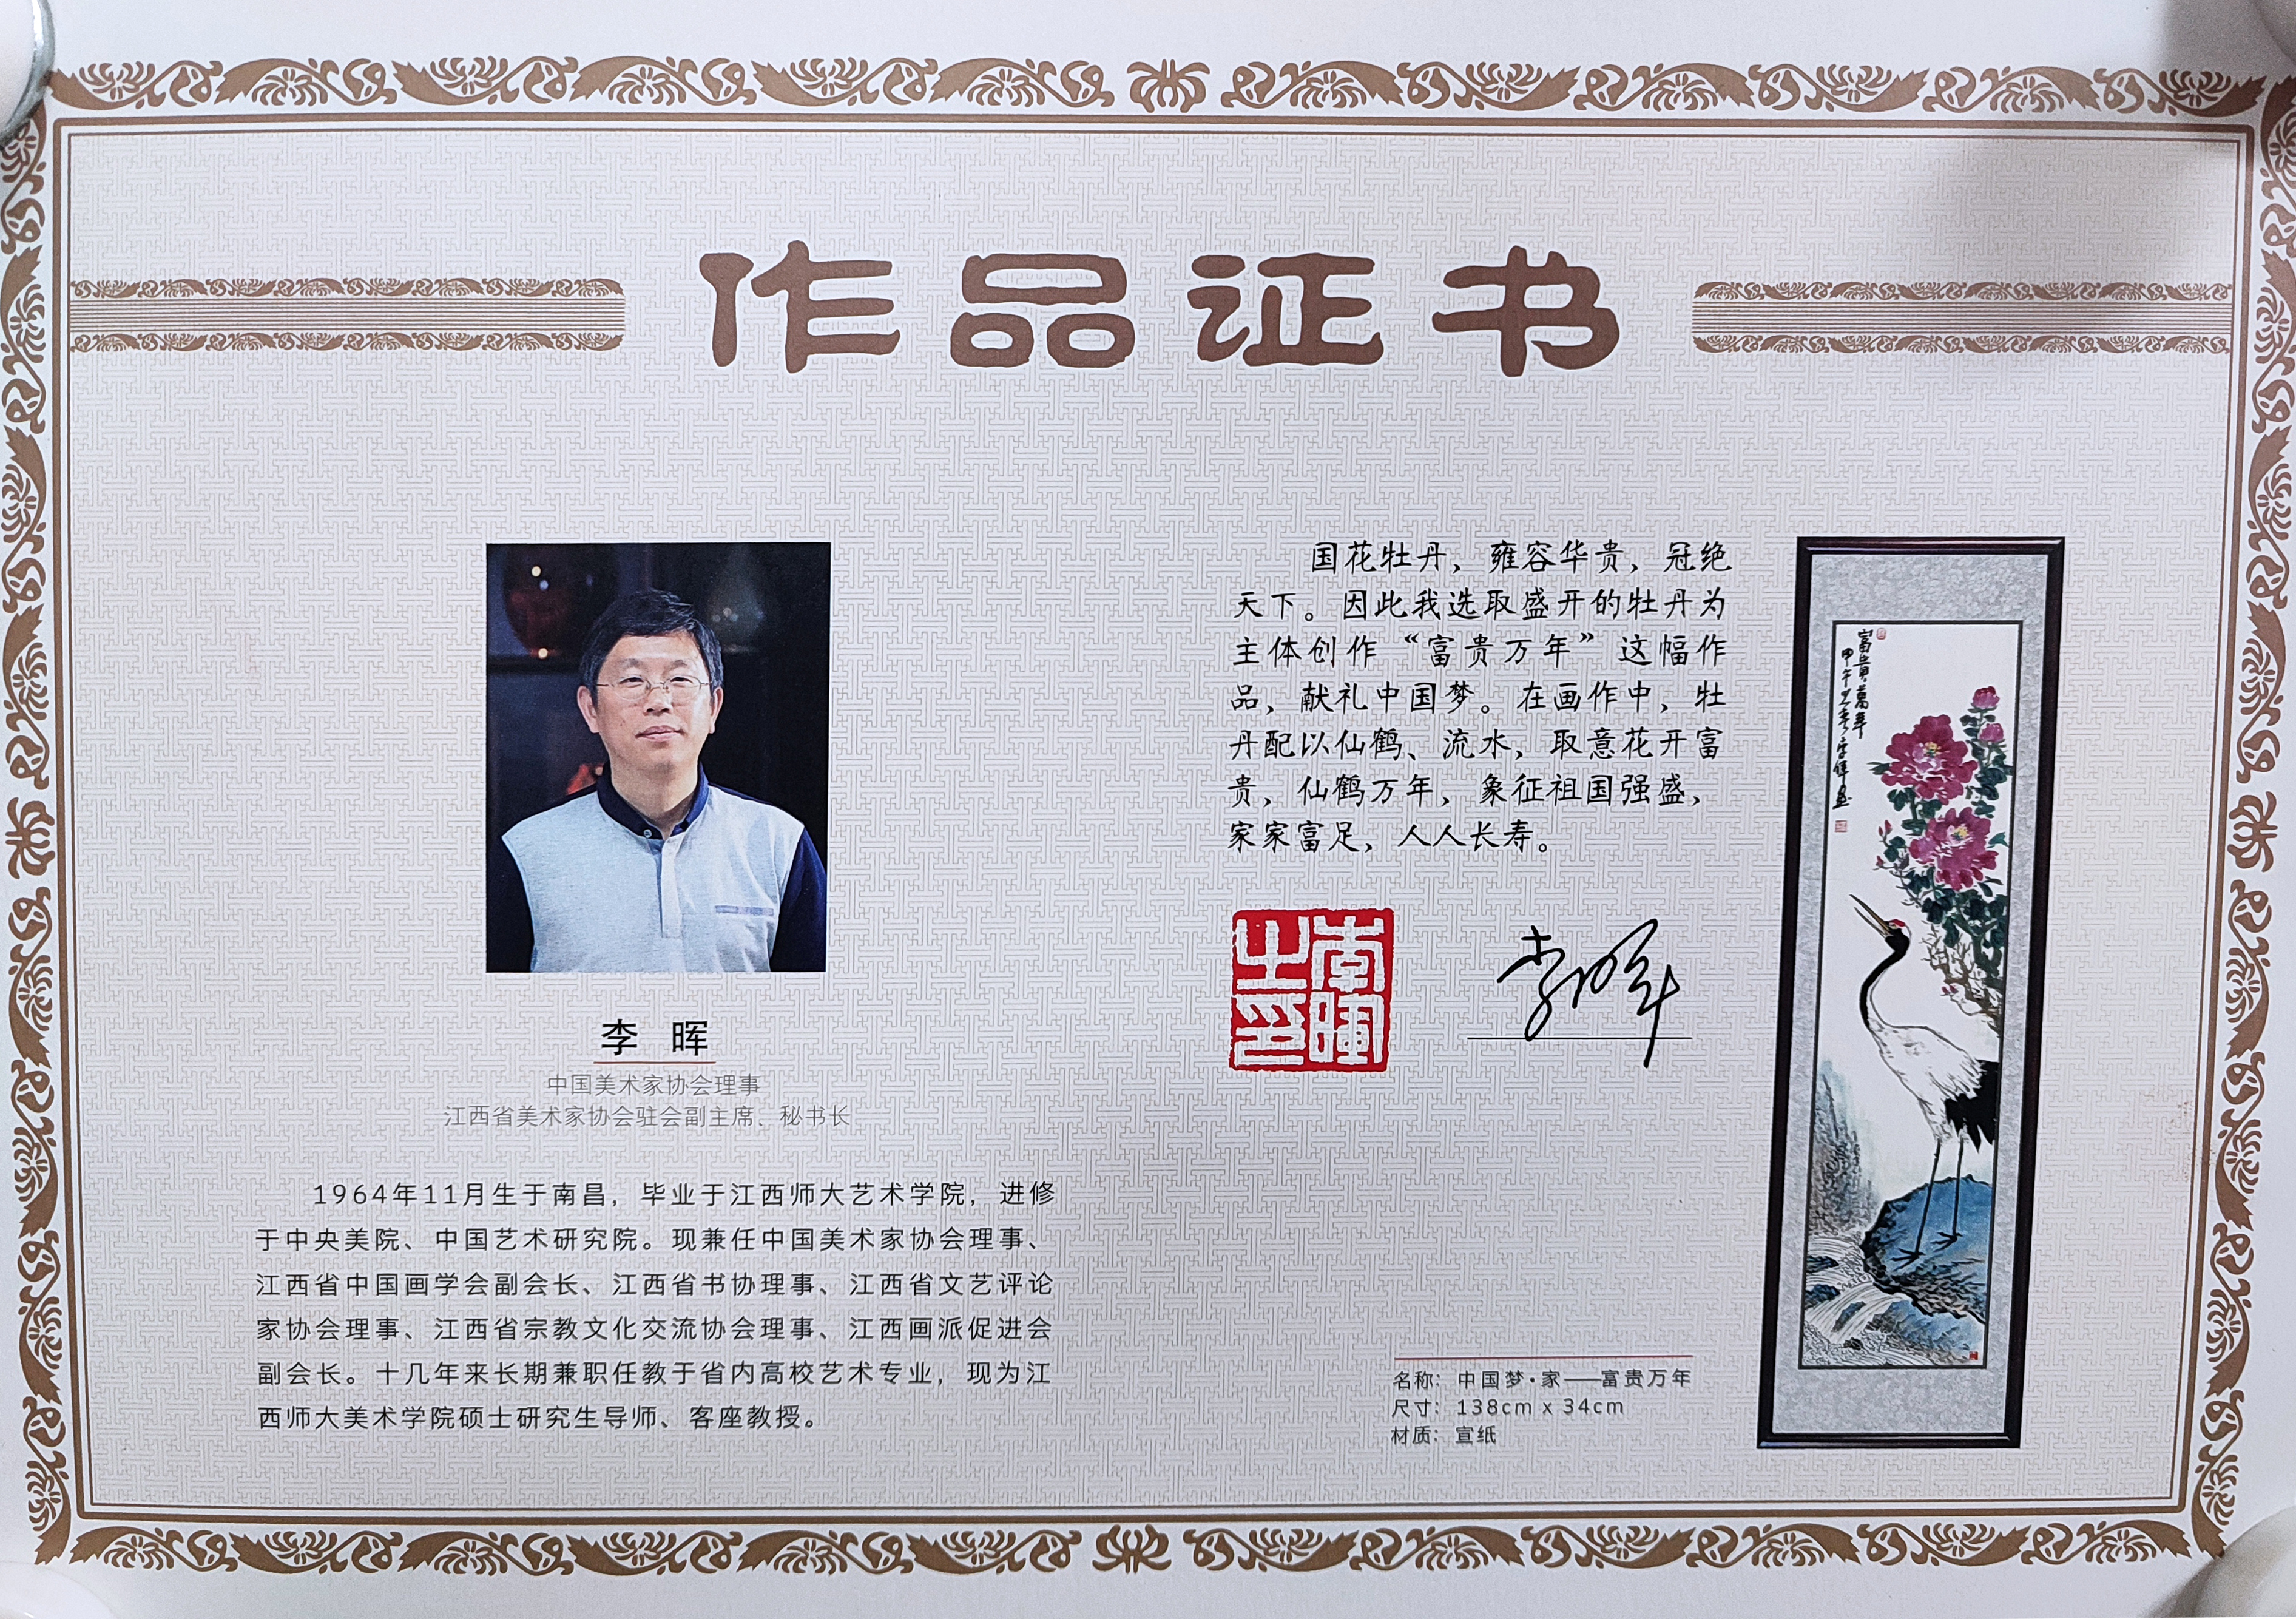 作品证书
李 晖
中国美术家协会理事
江西省美术家协会驻会副主席、秘书长
1964年11月生于南昌，毕业于江西师大艺术学院，进修
于中央美院、中国艺术研究院。现兼任中国美术家协会理事、
江西省中国画学会副会长、江西省书协理事、江西省文艺评论
家协会理事、江西省宗教文化交流协会理事、江西画派促进会
副会长。十几年来长期兼职任教于省内高校艺术专业，现为江
西师大美术学院硕士研究生导师、客座教授。
国花牡丹，雍容华贵，冠绝
天下。因此我选取盛开的牡丹为
主体创作“富贵万年”这幅作
品，献礼中国梦。在画作中，牡
丹配以仙鹤、流水，取意花开富
贵，仙鹤万年，象征祖国强盛，
家家富足，人人长寿。
李暉
之印
李晖
名称：中国梦·家——富贵万年
尺寸：138cm x 34cm
材质：宣纸
富貴萬年